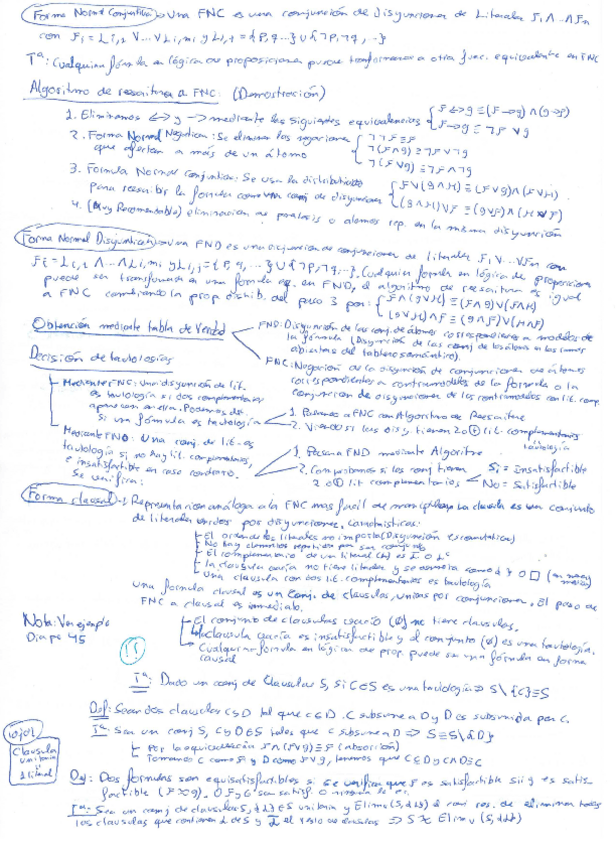 Forma Normal Conjuntiva: Una FNC es una conjunción de disyunciones de Literales F₁ ∧ ... ∧ Fn
con Fi = Li,1 ∨ ... ∨ Li,mi y Li,j = {P, q...} ∪ {¬P, ¬q, ..}
Tª: Cualquier fórmula en lógica de proposiciones puede transformarse a otra func. equivalente en FNC
Algoritmo de reescritura a FNC: (Demostración)
1. Eliminamos ↔ y → mediante las siguientes equivalencias { F↔g ≡ (F→g) ∧ (g→F)
F→g ≡ ¬F ∨ g
2. Forma Normal Negativa: Se eliminan las negaciones
que afectan a más de un átomo
{ ¬¬F ≡ F
¬(F∧g) ≡ ¬F ∨ ¬g
¬(F∨g) ≡ ¬F ∧ ¬g
3. Formula Normal Conjuntiva: Se usa la distributiva
para reescribir la fórmula como una conj. de disyunciones
{ F∨(g∧H) ≡ (F∨g)∧(F∨H)
(g∧H)∨F ≡ (g∨F)∧(H∨F)
4. (Muy Recomendable) eliminación de átomos rep. en la misma disyunción
Forma Normal Disyuntiva: Una FND es una disyunción de conjunciones de literales F₁ ∨ ... ∨ Fn con
Fi = Li,1 ∧ ... ∧ Li,mi y Li,j = {P, q, ...} ∪ {¬P, ¬q, ..}. Cualquier fórmula en lógica de proposiciones
puede ser transformada en una fórmula eq. en FND, el algoritmo de reescritura es igual
a FNC cambiando la prop distrib. del paso 3 por: { F∧(g∨H) ≡ (F∧g)∨(F∧H)
(g∨H)∧F ≡ (g∧F)∨(H∧F)
Obtención mediante tabla de Verdad
FND: Disyunción de las conj. de átomos correspondientes a modelos de
la fórmula (Disyunción de las conj de los átomos en las ramas
abiertas del tablero semántico).
FNC: Negación de la disyunción de conjunciones de átomos
correspondientes a contramodelos de la fórmula o la
conjunción de disyunciones de los contramodelos con lit. comp
Decisión de tautologías
Mediante FNC: Una disyunción de lit.
es tautología si dos complementarios
aparecen en ella. Podemos
si una fórmula es tautología
1. Pasamos a FNC con Algoritmo de Reescritura
2. Viendo si las disy. tienen 2 o + lit. complementarios
tautología
Mediante FND: Una conj. de lit. es
tautología si no hay lit. complementarios,
e insatisfactible en caso contrario.
Se verifica:
1. Pasar a FND mediante Algoritmo
2. Comprobamos si las conj tienen
2 o lit complementarios
Si = Insatisfactible
No = Satisfactible
Forma clausal: Representación análoga a la FNC mas facil de manipular. La clausula es un conjunto
de literales unidos por disyunciones. Características:
El orden de los literales no importa (Disyunción es conmutativa)
No hay elementos repetidos por ser conjunto
El complementario de un literal (L) es
La clausula vacía no tiene literales y se denota como { } o □
Una clausula con dos lit. complementarios es tautología
Una fórmula clausal es un conj. de clausulas, unidas por conjunciones. El paso de
FNC a clausal es inmediato.
El conjunto de clausulas vacío (∅) no tiene clausulas.
La clausula vacía es insatisfactible y el conjunto (∅) es una tautología.
Cualquier fórmula en lógica de prop. puede ser una fórmula en forma
clausal
Nota: Ver ejemplo
Diapo 45
Tª: Dado un conj de Clausulas S, si C∈S es una tautología ⇒ S\{C} ≡ S
Def: Sean dos clausulas C y D tal que C⊆D. C subsume a D y D es subsumida por C.
Tª: Sea un conj S, C y D∈S tales que C subsume a D ⇒ S ≡ S\{D}
Por la equivalencia F∧(F∨g) ≡ F (absorción)
Tomamos C como F y D como F∨g, tenemos que C⊆D y C∧D≡C
Clausula
unitaria
= 1 literal
Def: Dos formulas son equisatisfactibles si se verifica que F es satisfactible sii g es satis-
factible (F≈g).
Tª: Sea un conj de clausulas S, {L}∈S unitaria y Elim
las clausulas que contienen L de S y el resto de clausulas ⇒ S ≈ Elim